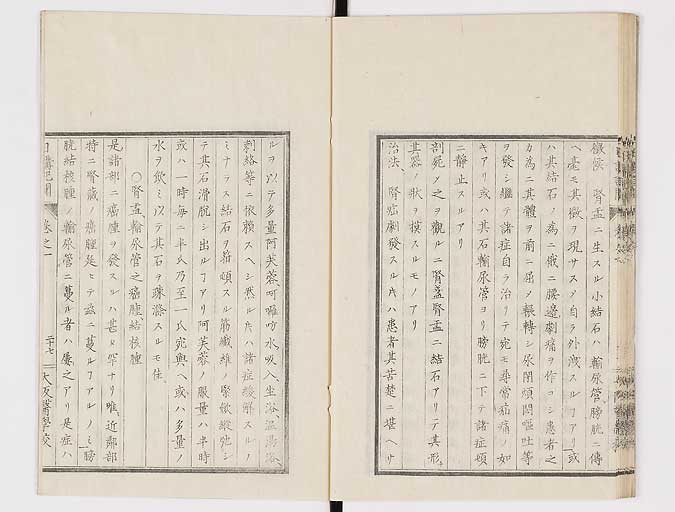 徴候 腎盂ニ生スル小結石ハ輸尿管膀胱ニ傳
ヘ毫モ其徴ヲ現サスノ自ラ外洩スルヿアリ或
ハ其結石ノ為ニ俄ニ腰邉劇痛ヲ作コシ患者之
カ為ニ其體ヲ前ニ屈メ輾轉シ尿閉煩悶嘔吐等
ヲ發シ継テ諸症自ラ治リテ宛モ尋常疝痛ノ如
キアリ或ハ其石輸尿管ヨリ膀胱ニ下テ諸症頓
ニ静止スルアリ
剖屍メ之ヲ觀ルニ腎盞腎盂ニ結石アリテ其形
其器ノ状ヲ摸スルモノアリ
治法 腎疝劇發スル片ハ患者其苦楚ニ堪ヘサ
ルヲ以テ多量阿芙蓉、呵囉仿水吸入、坐浴、温湯浴、
刺絡等ニ依頼スヘシ然ル片ハ諸症緩解スルノ
ミナラス結石ヲ箝頓スル筋纖維ノ緊歛縦弛シ
テ其石滑脱シ出ルヿアリ阿芙蓉ノ服量ハ半時
或ハ一時毎ニ半氏乃至一氏宛與ヘ或ハ多量ノ
水ヲ飲ミ以テ其石ヲ滌スルモ佳
〇腎盂、輸尿管之癌腫、結核腫
是諸部ニ癌腫ヲ發スルハ甚タ罕ナリ唯近鄰部
特ニ腎藏ノ癌腫延ヒテ茲ニ蔓ルヿアルノミ膀
胱結核腫ノ輸尿管ニ蔓ル者ハ屡之アリ是症ハ
日講記聞 巻之一 二十七 大阪醫學校